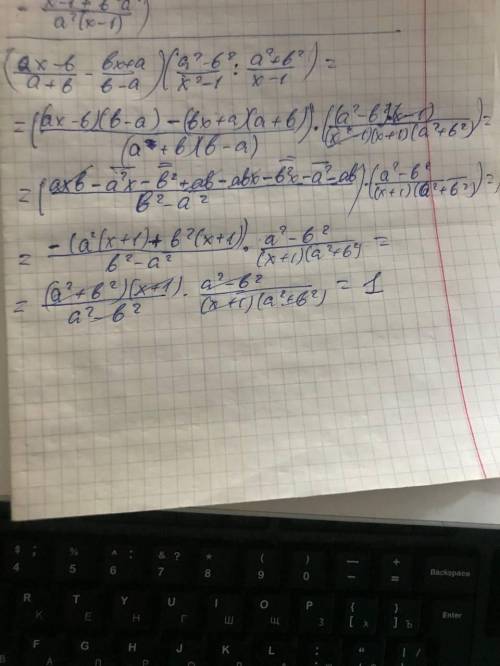 = x-1+b²a² / a²(x-1)
(ax-b / a+b - bx+a / b-a)(a²-b² / x²-1 : a²+b² / x-1) =
= ((ax-b)(b-a) - (bx+a)(a+b) / (a+b)(b-a)) · ((a²-b²)(x-1) / (x-1)(x+1)(a²+b²)) =
= (axb - a²x - b² + ab - abx - b²x - a² - ab / b²-a²) · (a²-b² / (x+1)(a²+b²)) =
= -(a²(x+1) + b²(x+1)) / b²-a² · a²-b² / (x+1)(a²+b²) =
= (a²+b²)(x+1) / a²-b² · a²-b² / (x+1)(a²+b²) = 1
$ ; % ^ : & ? * ( ) — +
4 5 6 7 8 9 0 - = Backspace
R T Y U I O P { }
К Е Н Г Ш Щ З [ Х ] Ъ Enter
F G H J K L :
А П Р О Л Д